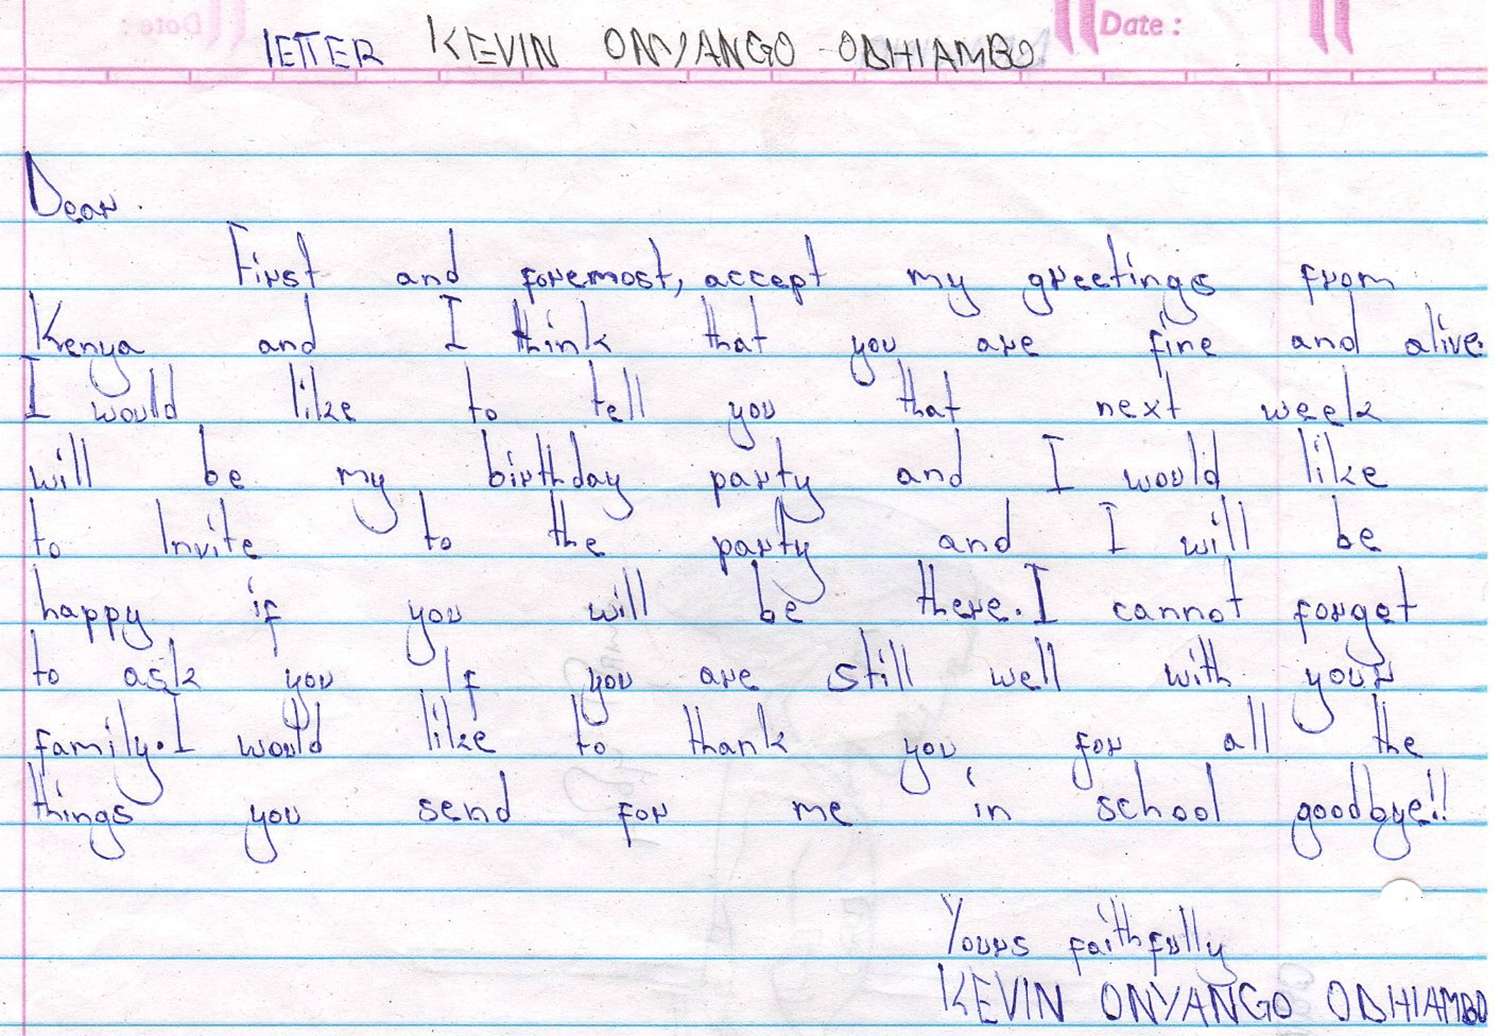 Date :
LETTER KEVIN ONYANGO ODHIAMBO
Dear.
First and foremost, accept my greetings from
Kenya and I think that you are fine and alive.
I would like to tell you that next week
will be my birthday party and I would like
to Invite to the party and I will be
happy if you will be there. I cannot forget
to ask you If you are still well with your
family. I would like to thank you for all the
things you send for me in school goodbye!!
Yours faithfully
KEVIN ONYANGO ODHIAMBO